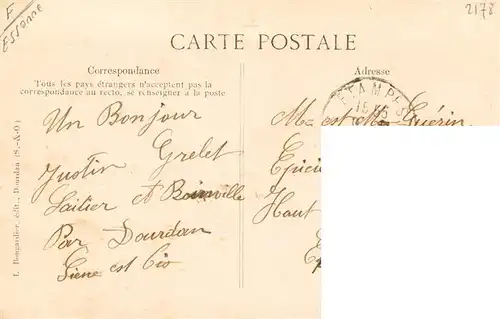 F
Essonne
2178
CARTE POSTALE
Correspondance
Tous les pays étrangers n'acceptent pas la
correspondance au recto, se renseigner à la poste
Un Bonjour
Justin Grelet
Laitier A Boinville
Par Dourdan
Siene est Ois
L. Bougardier, édit., Dourdan (S.-&-O.)
Adresse
ETAMPES
15
Mr est Me Guérin
Epici
Haut